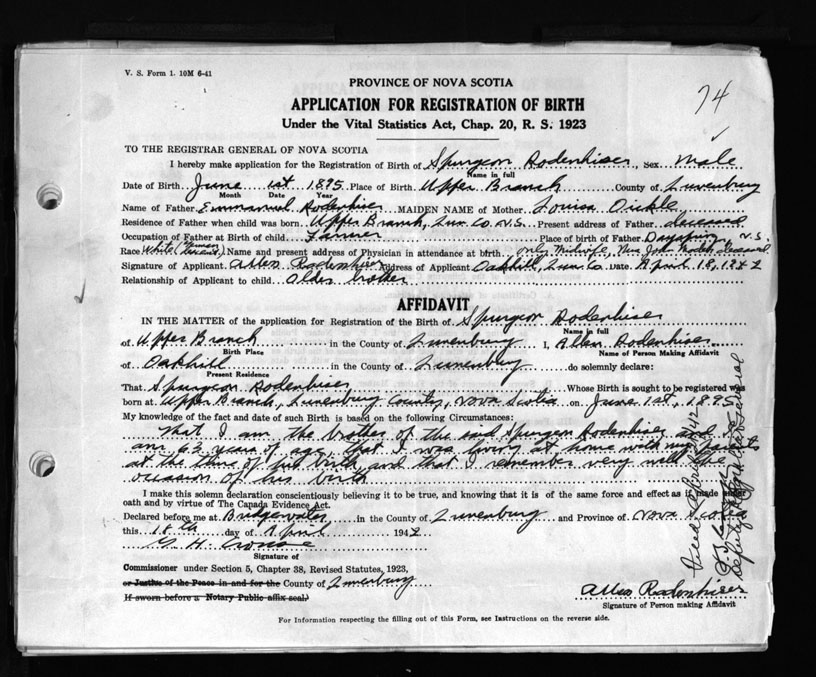 V. S. Form 1. 10M 6-41
74
PROVINCE OF NOVA SCOTIA
APPLICATION FOR REGISTRATION OF BIRTH
Under the Vital Statistics Act, Chap. 20, R. S. 1923
TO THE REGISTRAR GENERAL OF NOVA SCOTIA
I hereby make application for the Registration of Birth of Spurgeon Rodenhiser, Sex Male
Name in full
Date of Birth June 1st 1895 Place of Birth Upper Branch County of Lunenburg
Month Date Year
Name of Father Emmanuel Rodenhiser MAIDEN NAME of Mother Louisa Oickle
Residence of Father when child was born Upper Branch, Lun. Co. N.S. Present address of Father deceased
Occupation of Father at Birth of child Farmer Place of birth of Father Dayspring, N.S.
Race White (German Descent) Name and present address of Physician in attendance at birth only Midwife, Mrs. John Deceased
Signature of Applicant Allen Rodenhiser Address of Applicant Oakhill, Lun. Co. Date April 18, 1942
Relationship of Applicant to child older brother
AFFIDAVIT
IN THE MATTER of the application for Registration of the Birth of Spurgeon Rodenhiser
Name in full
of Upper Branch in the County of Lunenburg I, Allen Rodenhiser
Birth Place Name of Person Making Affidavit
of Oakhill in the County of Lunenburg do solemnly declare:
Present Residence
That Spurgeon Rodenhiser Whose Birth is sought to be registered was
born at Upper Branch, Lunenburg County, Nova Scotia on June 1st, 1895
My knowledge of the fact and date of such Birth is based on the following Circumstances:
That I am the brother of the said Spurgeon Rodenhiser and I
am 63 years of age, that I was living at home with my parents
at the time of his birth, and that I remember very well the
occasion of his birth
I make this solemn declaration conscientiously believing it to be true, and knowing that it is of the same force and effect as if made under
oath and by virtue of The Canada Evidence Act.
Declared before me at Bridgewater in the County of Lunenburg and Province of Nova Scotia
this 18th day of April 1942
Signature of
Commissioner under Section 5, Chapter 38, Revised Statutes, 1923,
or Justice of the Peace in and for the County of Lunenburg
If sworn before a Notary Public affix seal.)
Allen Rodenhiser
Signature of Person making Affidavit
For Information respecting the filling out of this Form, see Instructions on the reverse side.
Deputy Registrar General